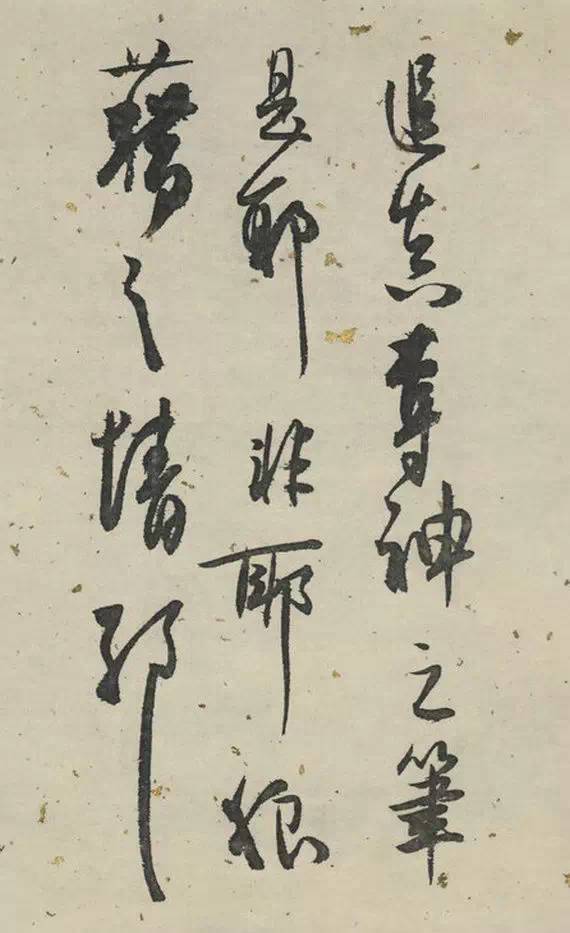 追真奪神之筆
是耶非耶狼
藉之情耶